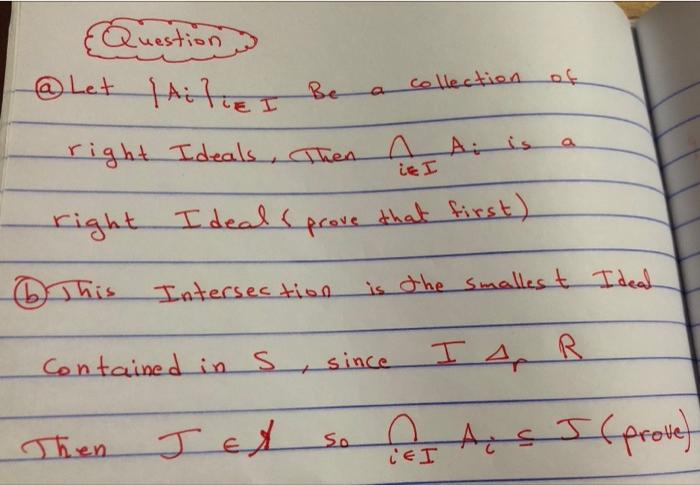 Question
ⓐ Let {Ai}i∈I Be a collection of
right Ideals, Then ⋂i∈I Ai is a
right Ideal (prove that first)
ⓑ This Intersection is the smallest Ideal
Contained in S, since I Δr R
Then J ∈ so ⋂i∈I Ai ⊆ J (prove)